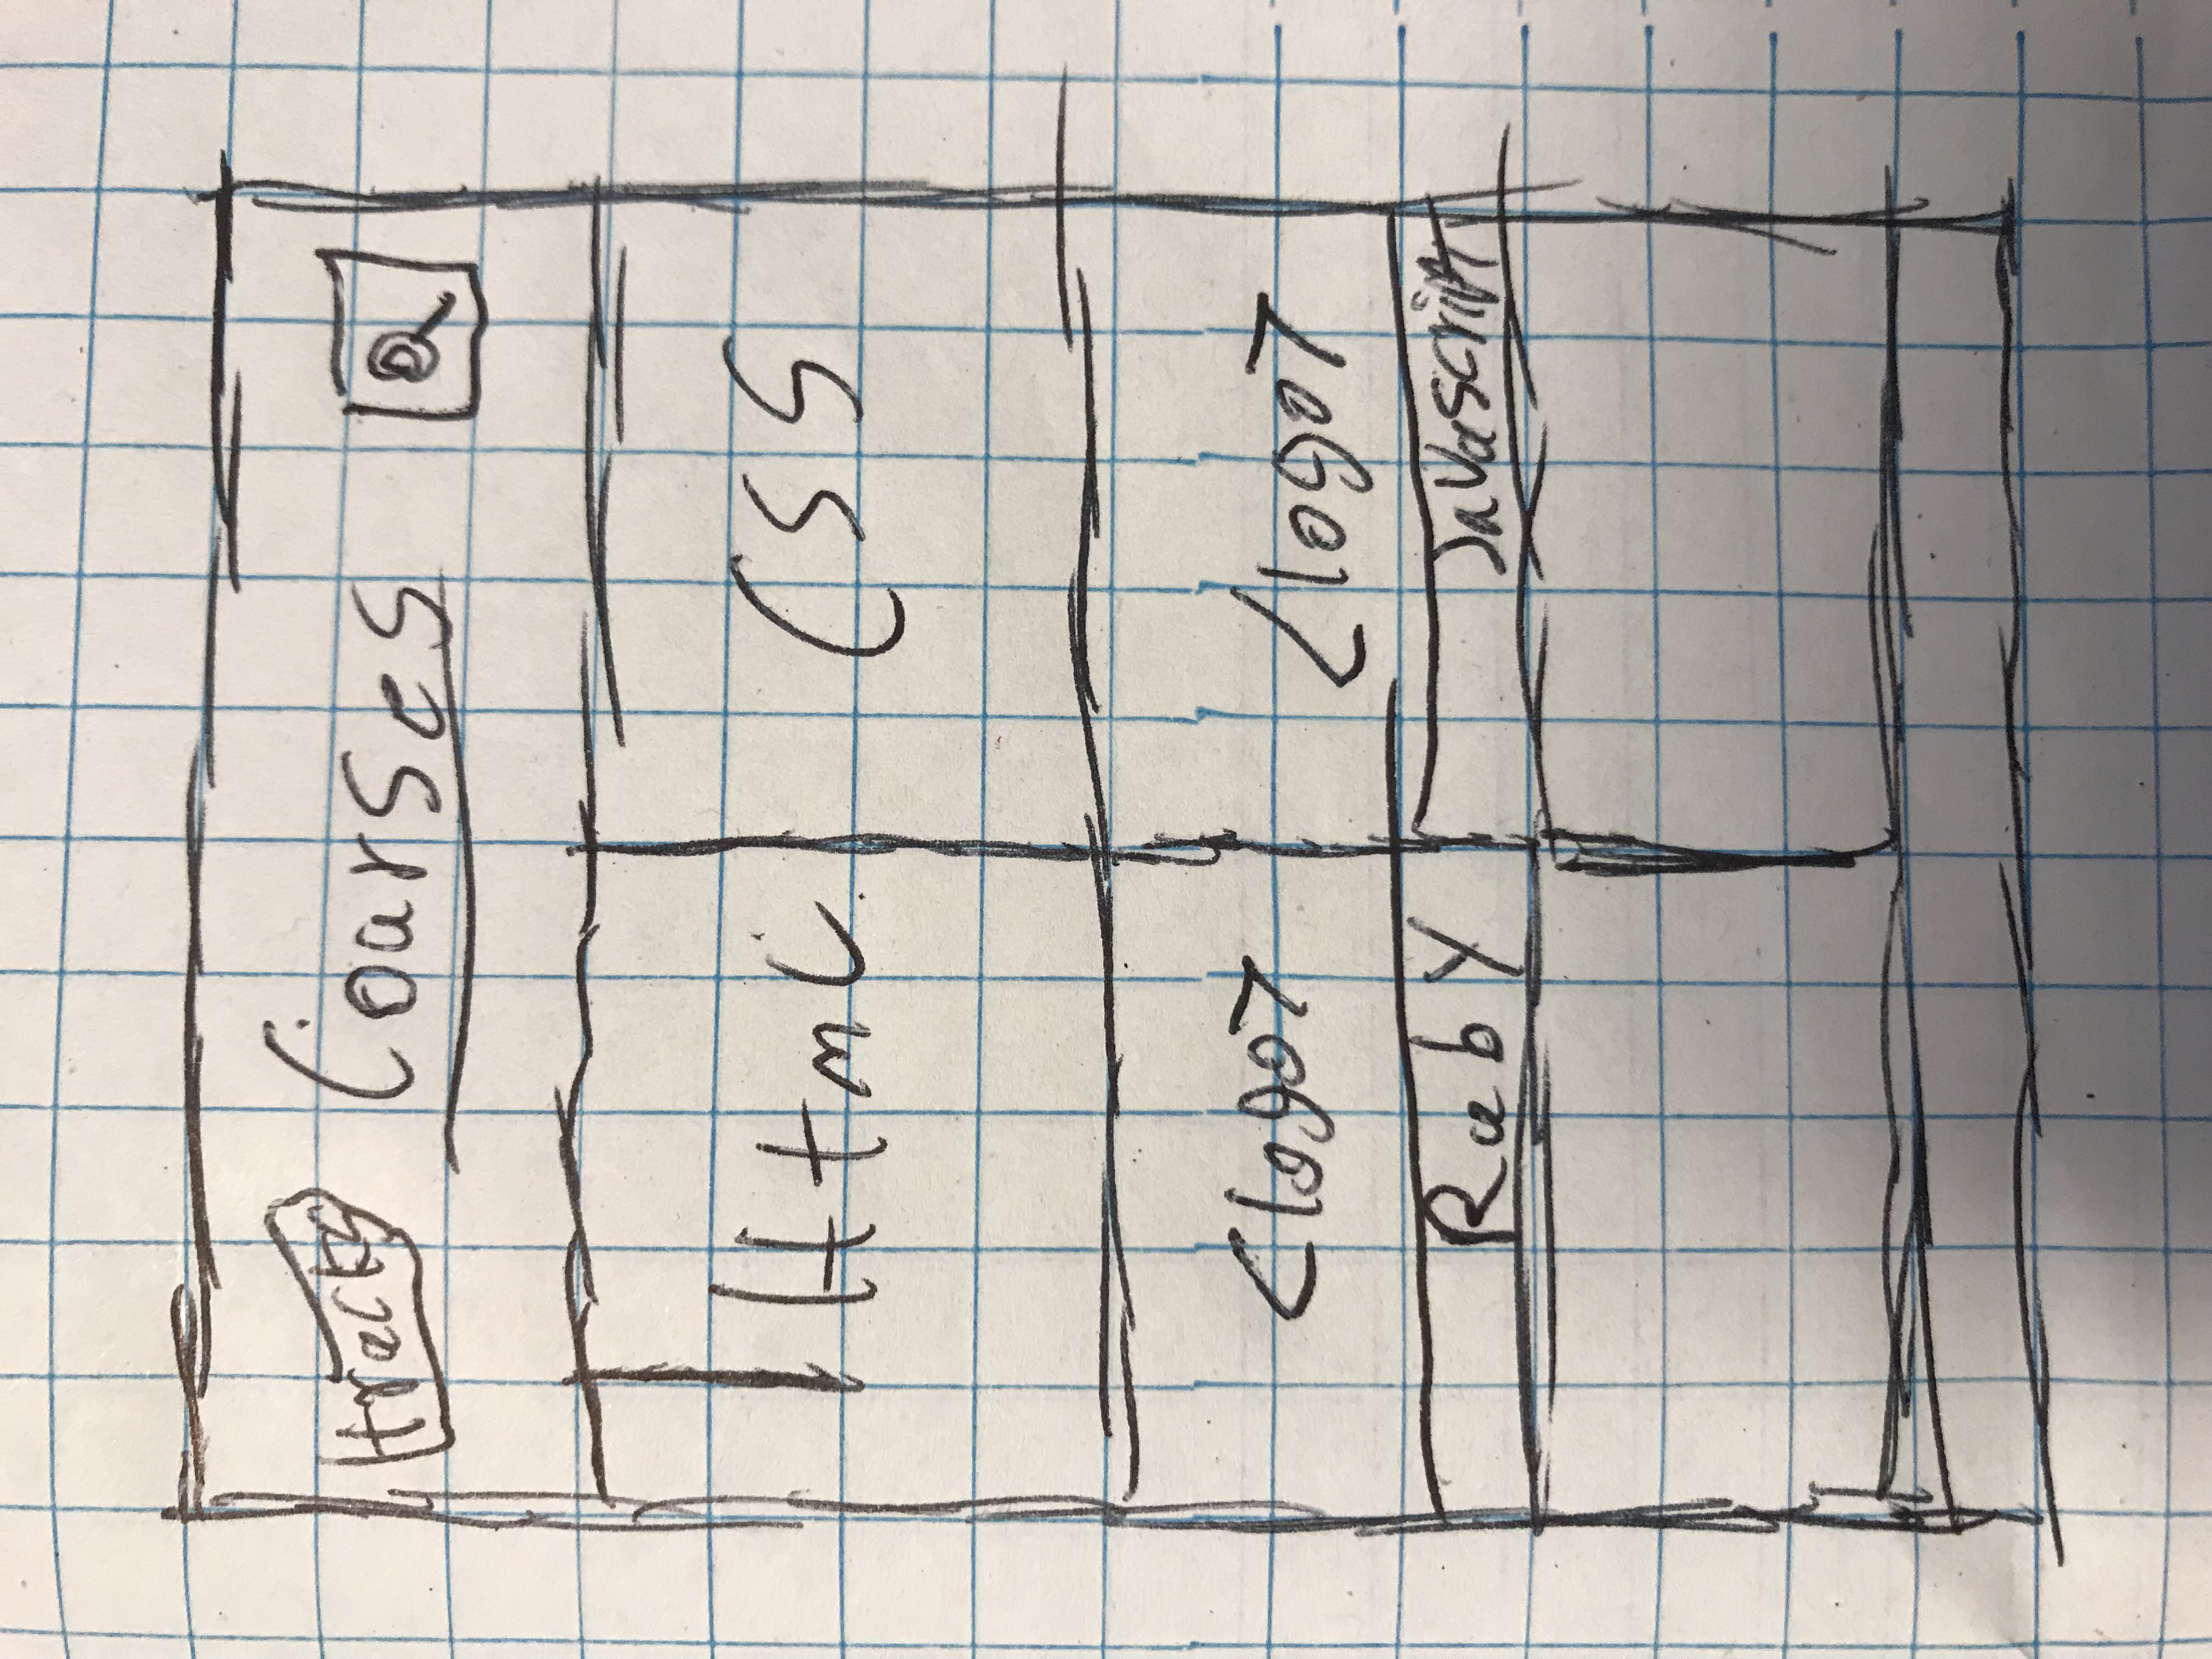 tracks Courses
Html CSS
<logo> <logo>
Ruby Javascript